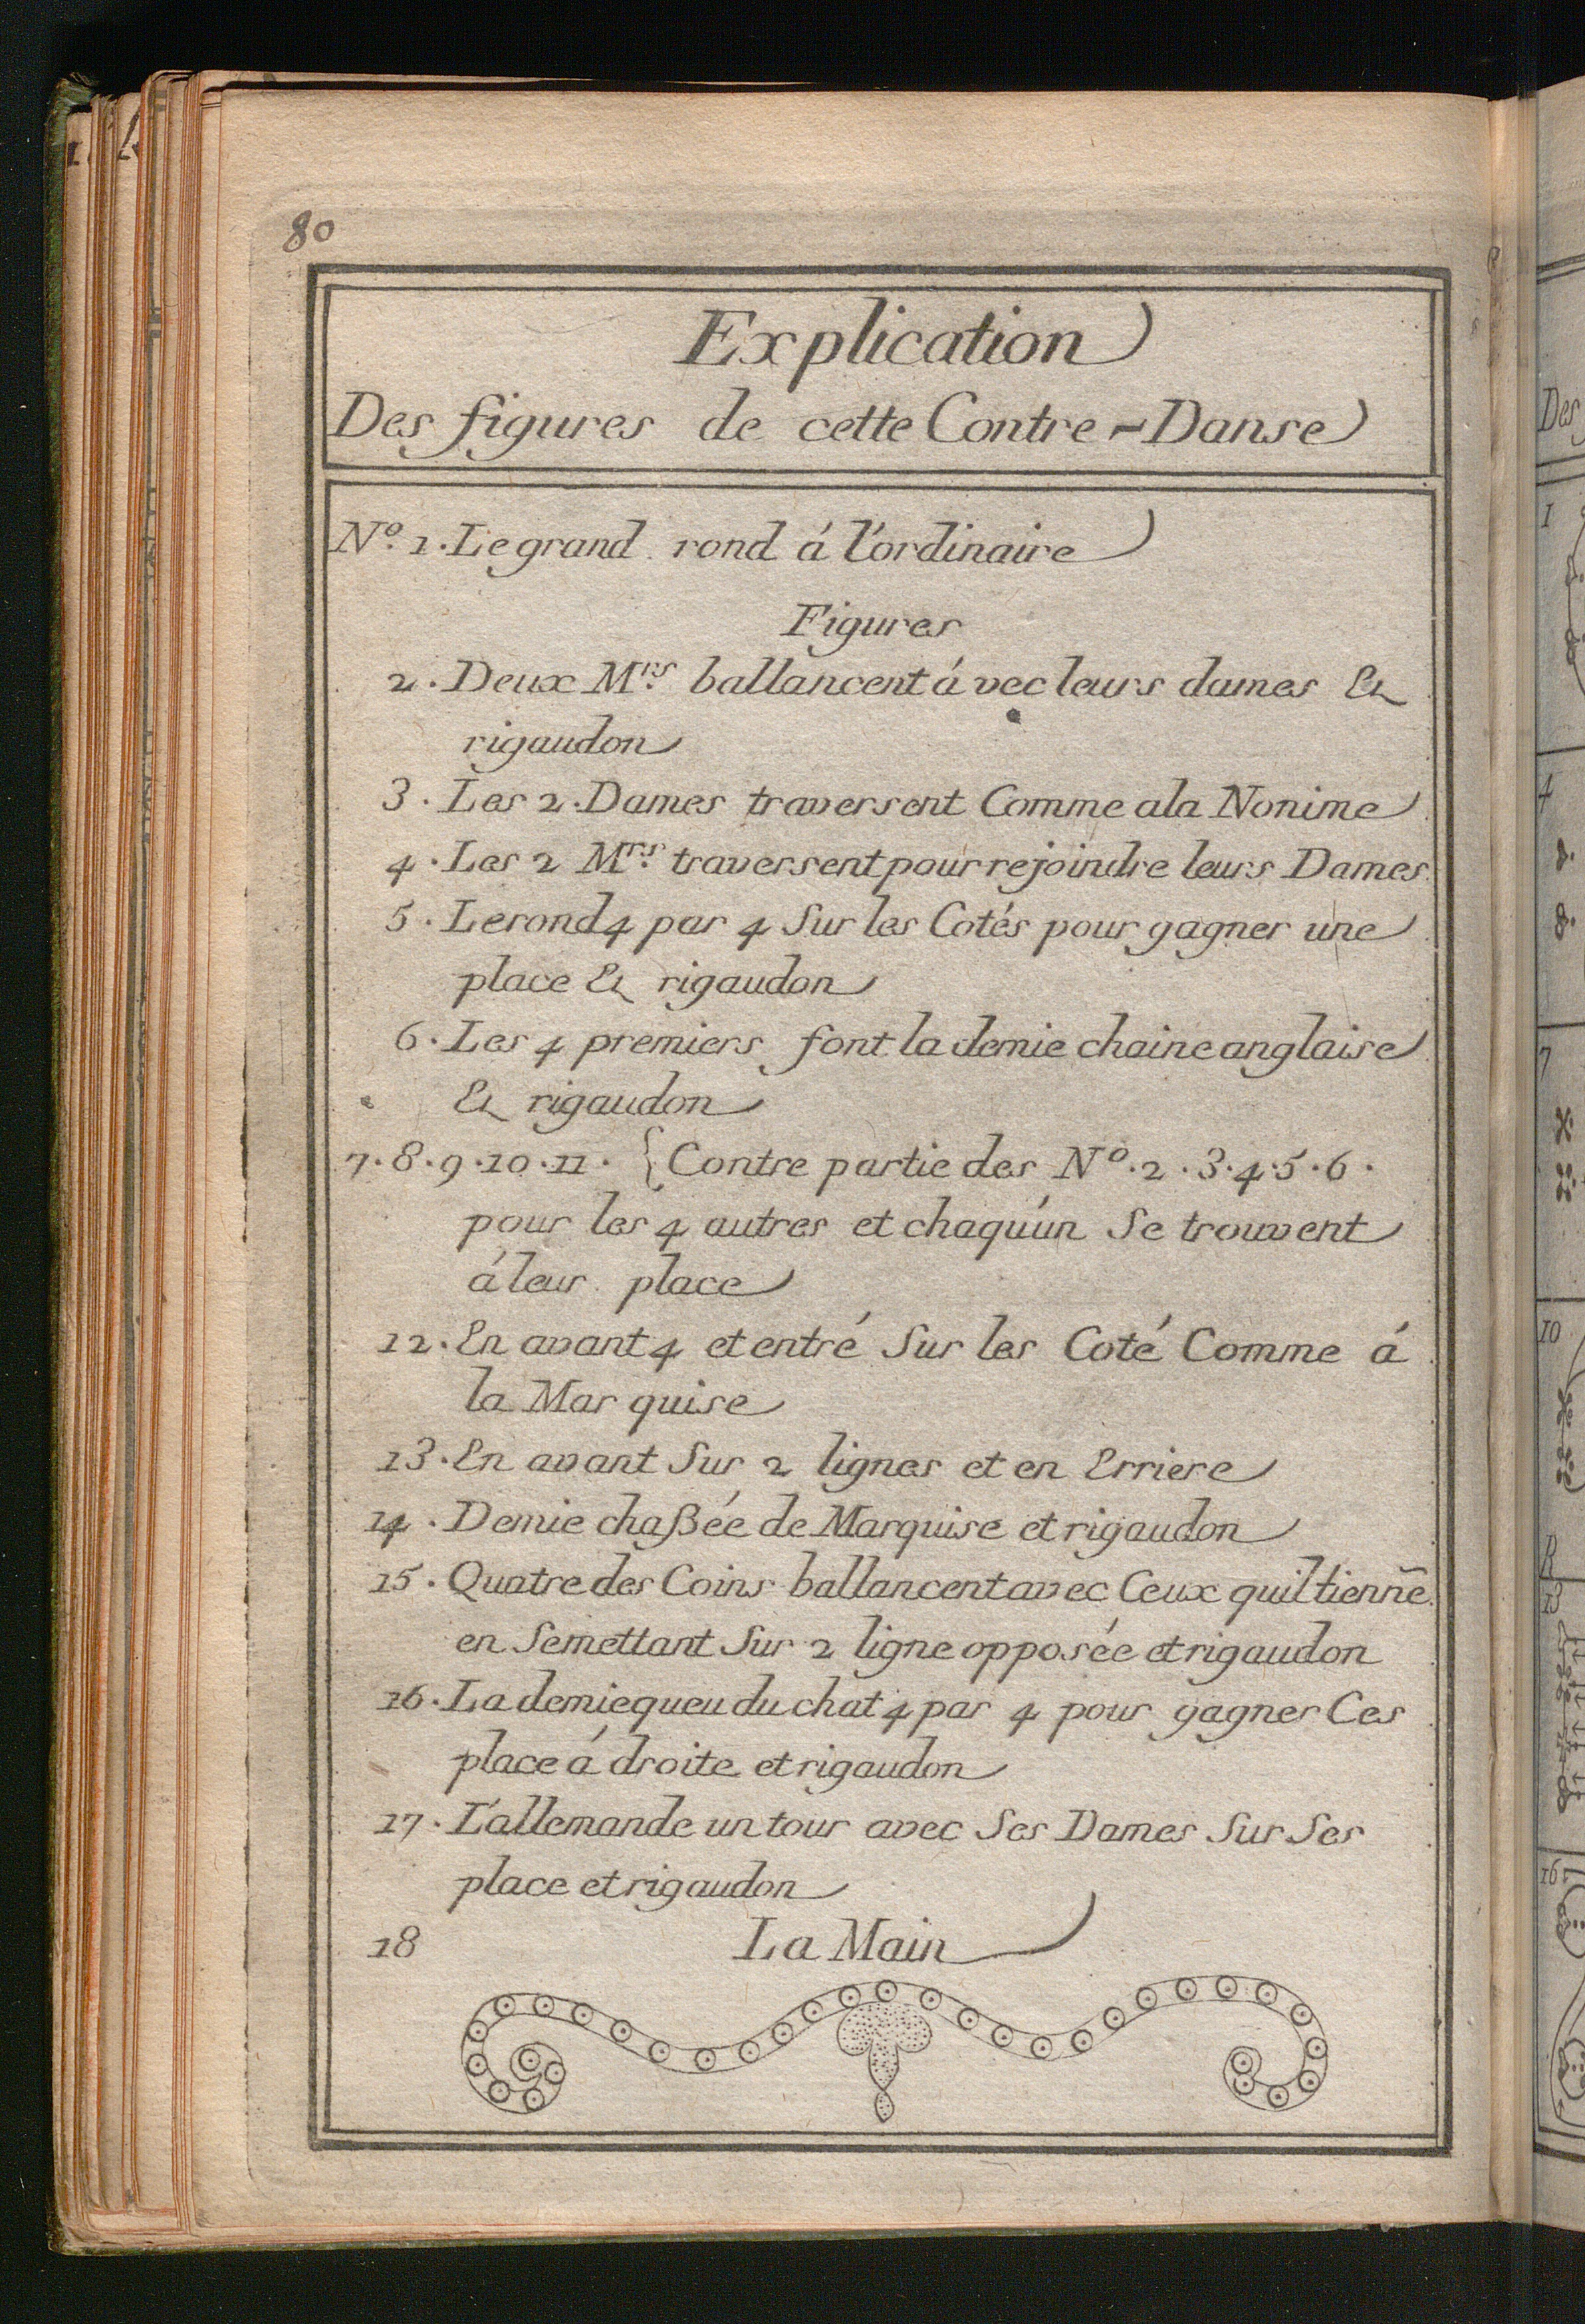 80
Explication
Des figures de cette Contre-Danse
Nº. 1. Le grand rond á l'ordinaire
Figures
2. Deux Mrs. ballancent ávec leurs dames &
rigaudon
3. Les 2. Dames traversent Comme ala Nonime
4. Les 2 Mrs. traversent pour rejoindre leurs Dames
5. Le rond 4 par 4 Sur les Cotés pour gagner une
place & rigaudon
6. Les 4 premiers font la demie chaine anglaise
& rigaudon
7. 8. 9. 10. 11. { Contre partie des Nº. 2. 3. 4. 5. 6.
pour les 4 autres et chaqu'un Se trouvent
á leur place
12. En avant 4 et entré Sur les Coté Comme á
la Marquise
13. En avant Sur 2 lignes et en Erriere
14. Demie chaßée de Marquise et rigaudon
15. Quatre des Coins ballancent avec Ceux quil tienñe
en Semettant Sur 2 ligne opposée et rigaudon
16. La demie queu du chat 4 par 4 pour gagner Ces
place á droite et rigaudon
17. L'allemande un tour avec Ses Dames Sur Ses
place et rigaudon
18 La Main
Des
1
4
7
10
13
16